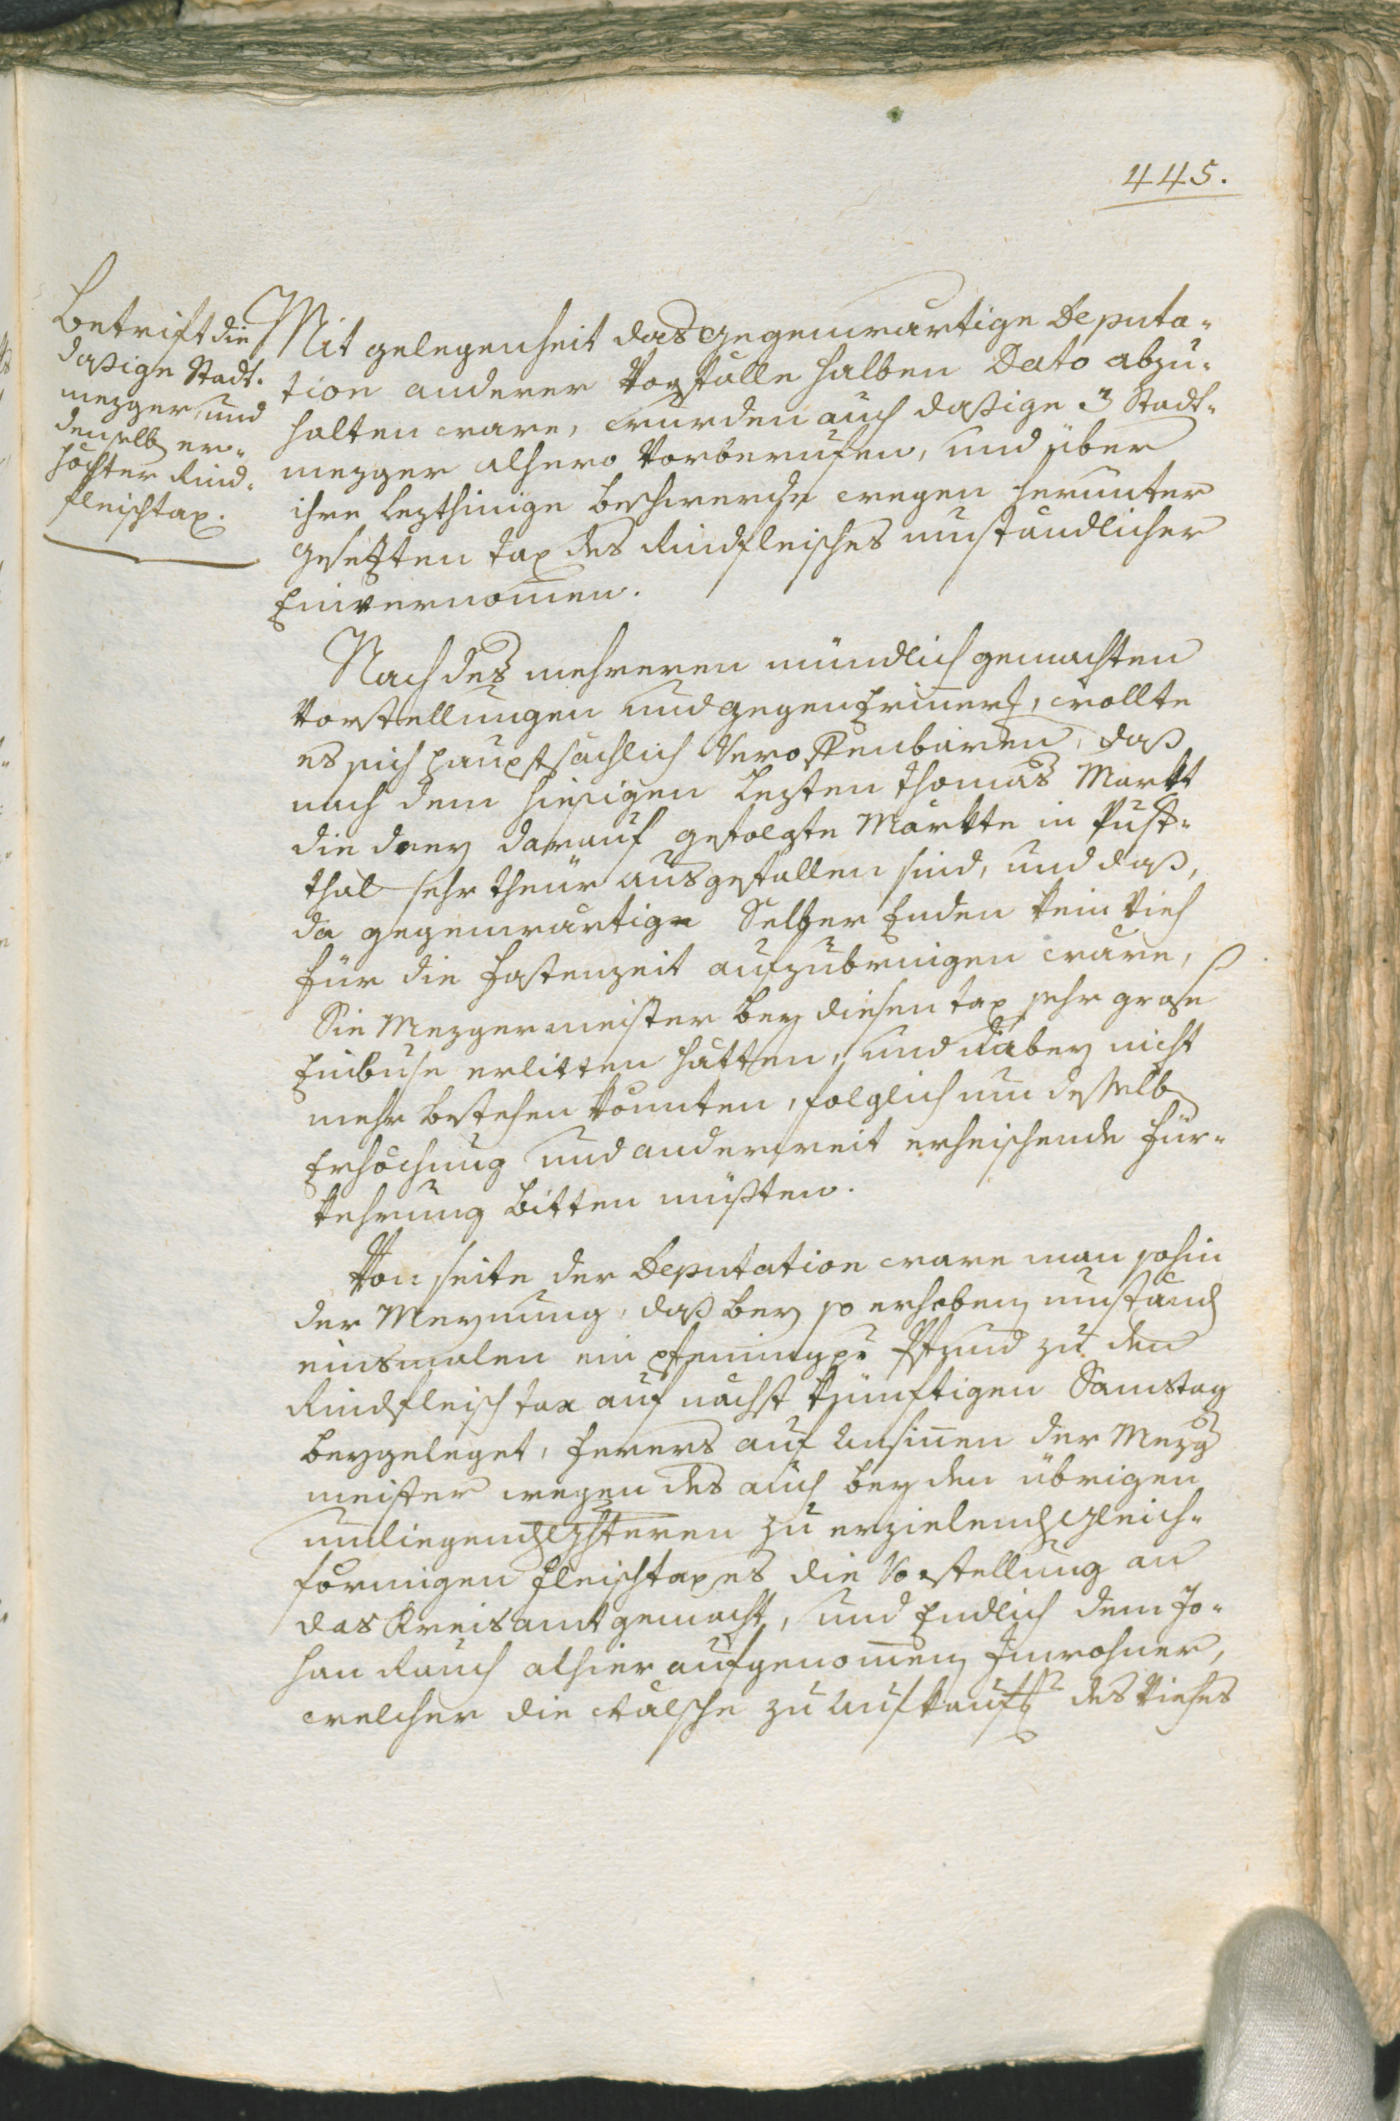 445.
Betrift die
daßige Stadt-
mezger, und
denselb er-
höchter Rind-
fleischtax.
Mit gelegenheit das gegenwärtige Deputa-
tion anderer Vorfälle halben Dato abzu-
halten ware, wurden auch daßige 3 Stadt-
mezger alhero Vorberufen, und über
ihre lezthinige beschwerde wegen herunter
gesetzten tax des Rindfleisches umständlicher
Einvernomen.
Nach des mehreren mündlich gemachten
Vorstellungen und gegenErinner, wollte
es sich hauptsächlich Veroffenbaren, daß
nach dem hiesigen lezten Thomas Markt
die drey darauf gefolgte Märkte in Pust-
thal sehr theür ausgefallen sind, und daß,
da gegenwärtige Selber Enden kein Vieh
für die fastenzeit aufzubringen ware,
Sie Mezgermeister bey diesen tax sehr grose
Einbuse erlitten hätten, und dabey nicht
mehr bestehen könnten, folglich um desselb
Erhöchung und anderweit erheischende für-
kehrung bitten müßten.
Von seite der Deputation ware man sohin
der Meynung, daß bey so erhoben umständ
einsmalen ein pfening pr Pfund zu den
Rindfleisch tax auf nächst künftigen Samstag
beygeleget, ferers auf Ansinnen der Mezg
meister wegen des auch bey den übrigen
umliegend zu erzielend gleich-
förmigen fleischtaxes die Vorstellung an
das Kreisamt gemacht, und Endlich dem Jo-
han Rauch alhier aufgenomen Inwohner,
welcher die Wälsche zu Aufkauff des Viehes